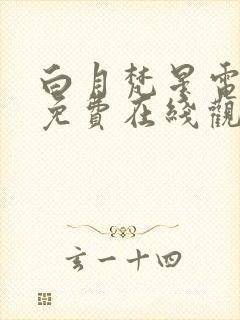 白月梵星電
免費在綫觀
玄一十四